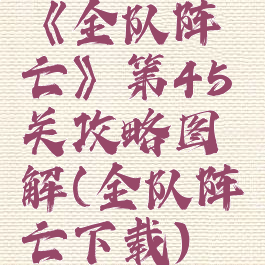 《全队阵
亡》第45
关攻略图
解(全队阵
亡下载)